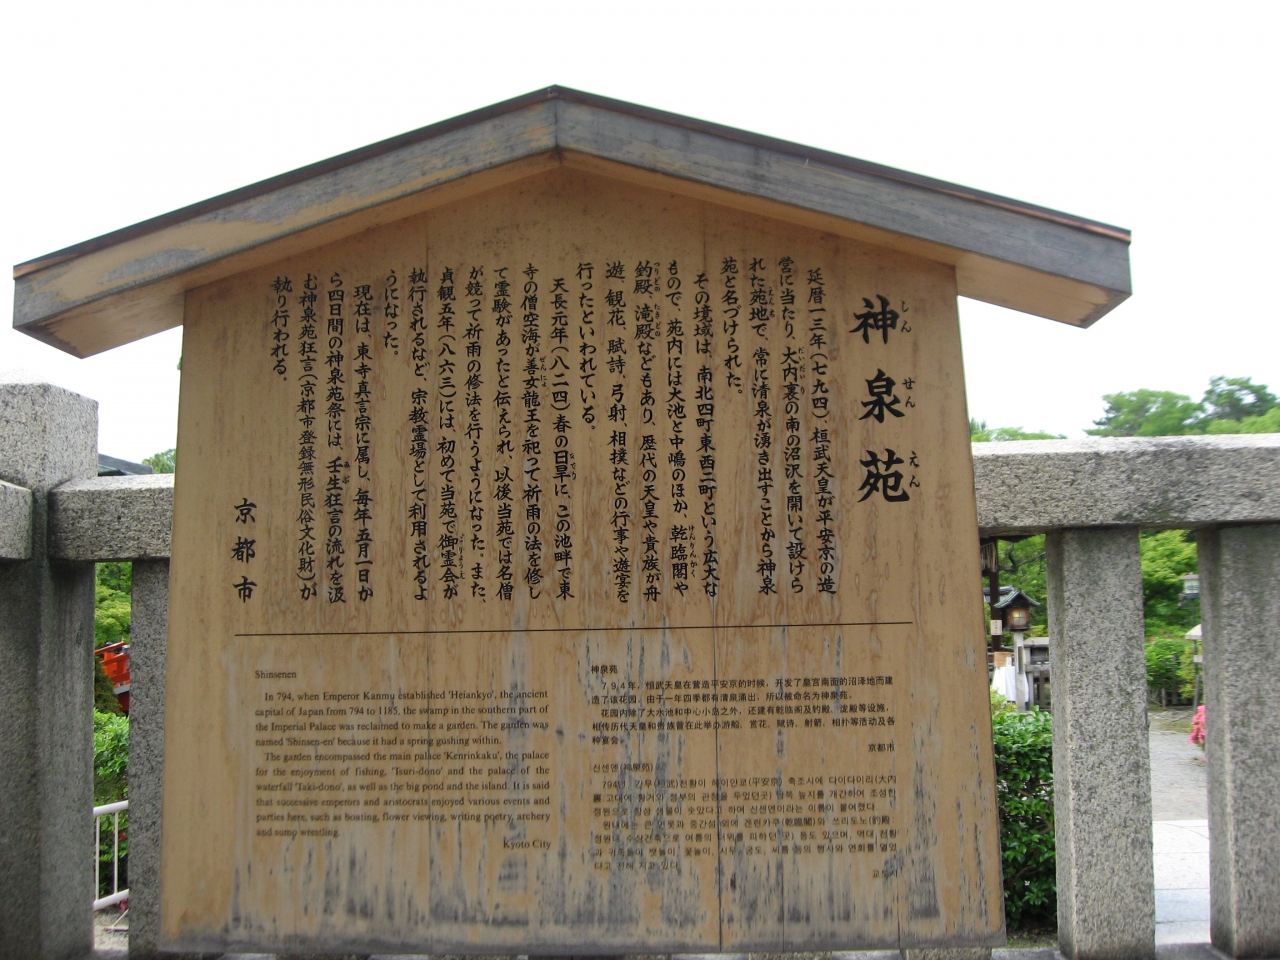 神泉苑
しんせんえん
延暦一三年(七九四)、桓武天皇が平安京の造
営に当たり、大内裏の南の沼沢を開いて設けら
れた苑地で、常に清泉が湧き出すことから神泉
苑と名づけられた。
その境域は、南北四町東西二町という広大な
もので、苑内には大池と中嶋のほか、乾臨閣や
釣殿、滝殿などもあり、歴代の天皇や貴族が舟
遊、観花、賦詩、弓射、相撲などの行事や遊宴を
行ったといわれている。
天長元年(八二四)春の日旱に、この池畔で東
寺の僧空海が善女龍王を祀って祈雨の法を修し
て霊験があったと伝えられ、以後当苑では名僧
が競って祈雨の修法を行うようになった。また、
貞観五年(八六三)には、初めて当苑で御霊会が
執行されるなど、宗教霊場として利用されるよ
うになった。
現在は、東寺真言宗に属し、毎年五月一日か
ら四日間の神泉苑祭には、壬生狂言の流れを汲
む神泉苑狂言(京都市登録無形民俗文化財)が
執り行われる。
京都市
Shinsenen
In 794, when Emperor Kanmu established 'Heiankyo', the ancient
capital of Japan from 794 to 1185, the swamp in the southern part of
the Imperial Palace was reclaimed to make a garden. The garden was
named 'Shinsen-en' because it had a spring gushing within.
The garden encompassed the main palace 'Kenrinkaku', the palace
for the enjoyment of fishing, 'Tsuri-dono' and the palace of the
waterfall 'Taki-dono', as well as the big pond and the island. It is said
that successive emperors and aristocrats enjoyed various events and
parties here, such as boating, flower viewing, writing poetry, archery
and sumo wrestling.
Kyoto City
神泉苑
794年，恒武天皇在营造平安京的时候，开发了皇宫南面的沼泽地而建
造了该花园，由于一年四季都有清泉涌出，所以被命名为神泉苑。
花园内除了大水池和中心小岛之外，还建有乾临阁及钓殿、泷殿等设施，
相传历代天皇和贵族曾在此举办游船、赏花、赋诗、射箭、相扑等活动及各
种宴会。
京都市
신센엔(神泉苑)
794년, 간무(桓武)천황이 헤이안쿄(平安京) 축조시에 다이다이리(大内
裏,고대에 황거와 정부의 관청을 두었던곳) 남쪽 늪지를 개간하여 조성한
정원으로 항상 샘물이 솟았다고 하여 신센엔이라는 이름이 붙여졌다.
원내에는 큰 연못과 중간섬 외에 겐린카쿠(乾臨閣)와 쓰리도노(釣殿
정원내 수상건축으로 여름의 더위를 피하던 곳) 등도 있으며, 역대 천황
과 귀족들이 뱃놀이, 꽃놀이, 시부, 궁도, 씨름 등의 행사와 연회를 열었
다고 전해 지고 있다.
교토시